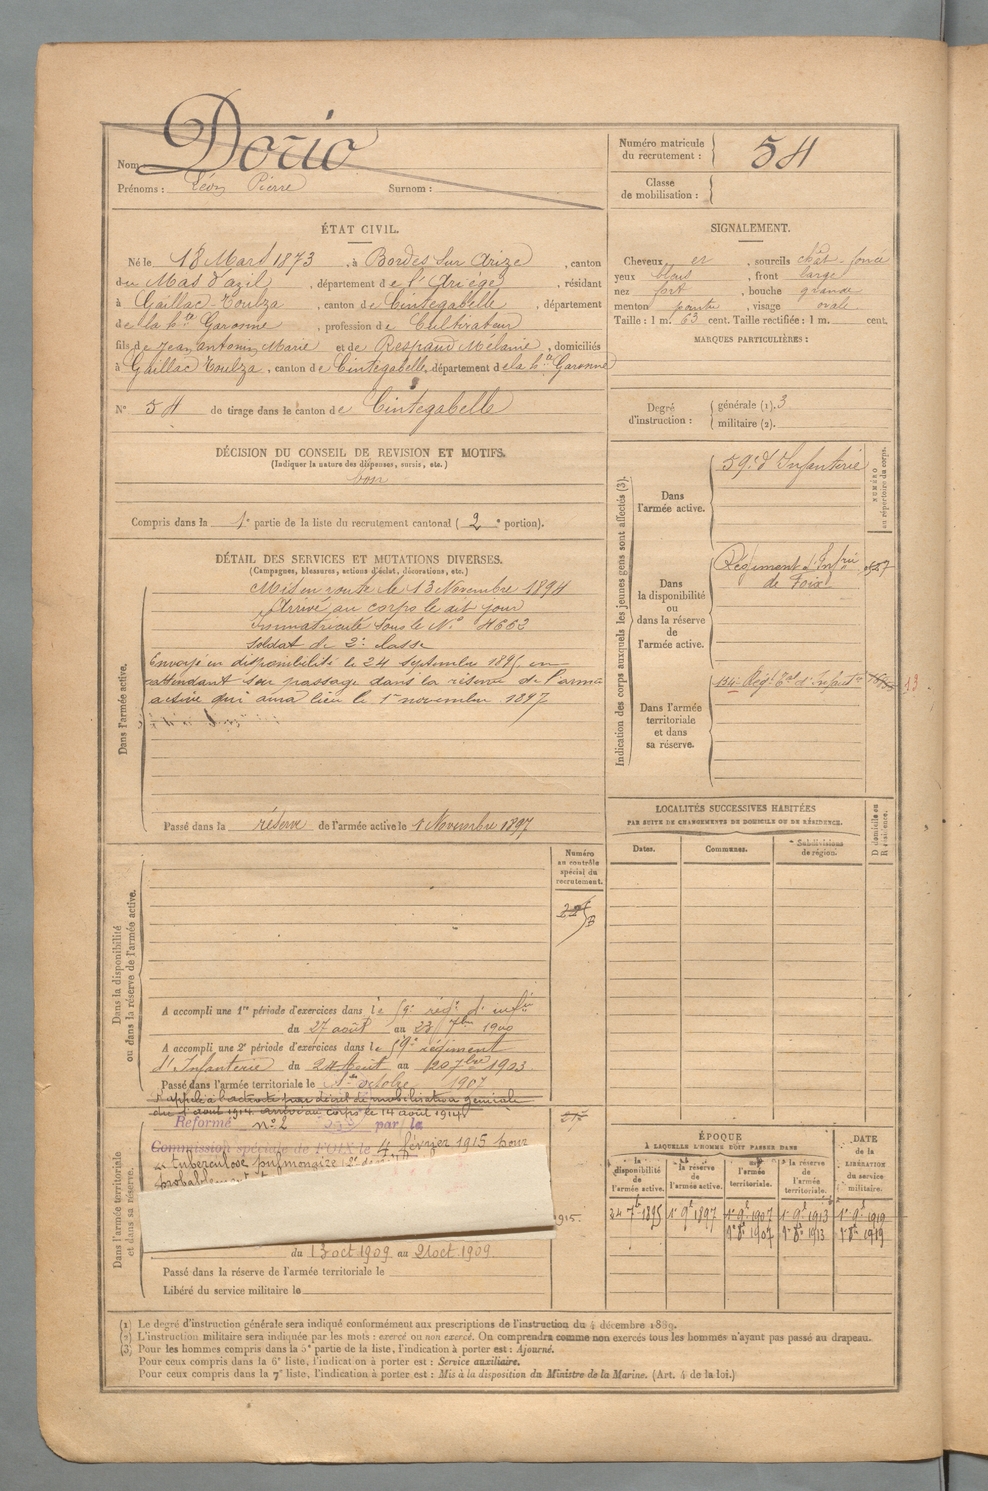 Nom : Dorio
Prénoms : Léon Pierre Surnom :
Numéro matricule du recrutement : 54
Classe de mobilisation :
ÉTAT CIVIL.
Né le 18 Mars 1873, à Bordes sur Arize, canton
du Mas d'azil, département de l'Ariège, résidant
à Gaillac Toulza, canton de Cintegabelle, département
de la hte Garonne, profession de Cultivateur
fils de Jean antonin Marie et de Respaud Mélanie, domiciliés
à Gaillac Toulza, canton de Cintegabelle, département de la hte Garonne
N° 54 de tirage dans le canton de Cintegabelle
SIGNALEMENT.
Cheveux et, sourcils chât-foncé
yeux bleus, front large
nez fort, bouche grande
menton pointu, visage ovale
Taille : 1 m. 63 cent. Taille rectifiée : 1 m. cent.
MARQUES PARTICULIÈRES :
Degré d'instruction : générale (1). 3
militaire (2).
DÉCISION DU CONSEIL DE REVISION ET MOTIFS.
(Indiquer la nature des dispenses, sursis, etc.)
bon
Compris dans la 1e partie de la liste du recrutement cantonal (2e portion).
DÉTAIL DES SERVICES ET MUTATIONS DIVERSES.
(Campagnes, blessures, actions d'éclat, décorations, etc.)
Dans l'armée active.
Mis en route le 13 Novembre 1894
Arrivé au corps le dit jour
immatriculé sous le N° 4662
soldat de 2e classe
Envoyé en disponibilité le 24 septembre 1895 en
attendant son passage dans la réserve de l'armée
active qui aura lieu le 1er novembre 1897
Passé dans la réserve de l'armée active le 1 Novembre 1897
Indication des corps auxquels les jeunes gens sont affectés (3).
NUMÉRO au répertoire du corps.
Dans l'armée active.
59e d'Infanterie
Dans la disponibilité ou dans la réserve de l'armée active.
Régiment d'Infrie
de Foix
Dans l'armée territoriale et dans sa réserve.
134e Régt tal d'Infrie
13
LOCALITÉS SUCCESSIVES HABITÉES
PAR SUITE DE CHANGEMENTS DE DOMICILE OU DE RÉSIDENCE.
Dates. Communes. Subdivisions de région. D domicile ou R résidence.
Dans la disponibilité ou dans la réserve de l'armée active.
Numéro au contrôle spécial du recrutement.
A accompli une 1re période d'exercices dans le 59e régt d'infie
du 27 août au 23 7bre 1900
A accompli une 2e période d'exercices dans le 59e régiment
d'Infanterie du 24 Août au 20 7bre 1903
Passé dans l'armée territoriale le 1er octobre 1907
Rappelé à l'activité par décret de mobilisation générale
du 1er août 1914. arrivé au corps le 14 août 1914
Dans l'armée territoriale et dans sa réserve.
Réformé n° 2 par la
Commission spéciale de FOIX le 4 février 1915 pour
tuberculose pulmonaire 2e degré
probablement
1915.
du 13 oct 1909 au 21 oct. 1909
Passé dans la réserve de l'armée territoriale le
Libéré du service militaire le
ÉPOQUE
À LAQUELLE L'HOMME DOIT PASSER DANS
la disponibilité de l'armée active. la réserve de l'armée active. l'armée territoriale. la réserve de l'armée territoriale.
DATE de la LIBÉRATION du service militaire.
24 7b 1895 1er 9b 1897 1er 9b 1907 1er 9b 1913 1er 9b 1919
1er 8b 1907 1er 8b 1913 1er 8b 1919
(1) Le degré d'instruction générale sera indiqué conformément aux prescriptions de l'instruction du 4 décembre 1889.
(2) L'instruction militaire sera indiquée par les mots : exercé ou non exercé. On comprendra comme non exercés tous les hommes n'ayant pas passé au drapeau.
(3) Pour les hommes compris dans la 5e partie de la liste, l'indication à porter est : Ajourné.
Pour ceux compris dans la 6e liste, l'indication à porter est : Service auxiliaire.
Pour ceux compris dans la 7e liste, l'indication à porter est : Mis à la disposition du Ministre de la Marine. (Art. 4 de la loi.)